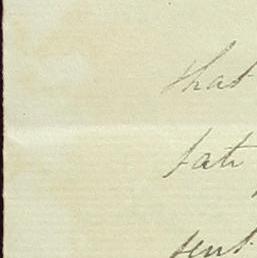 that
fate
sent